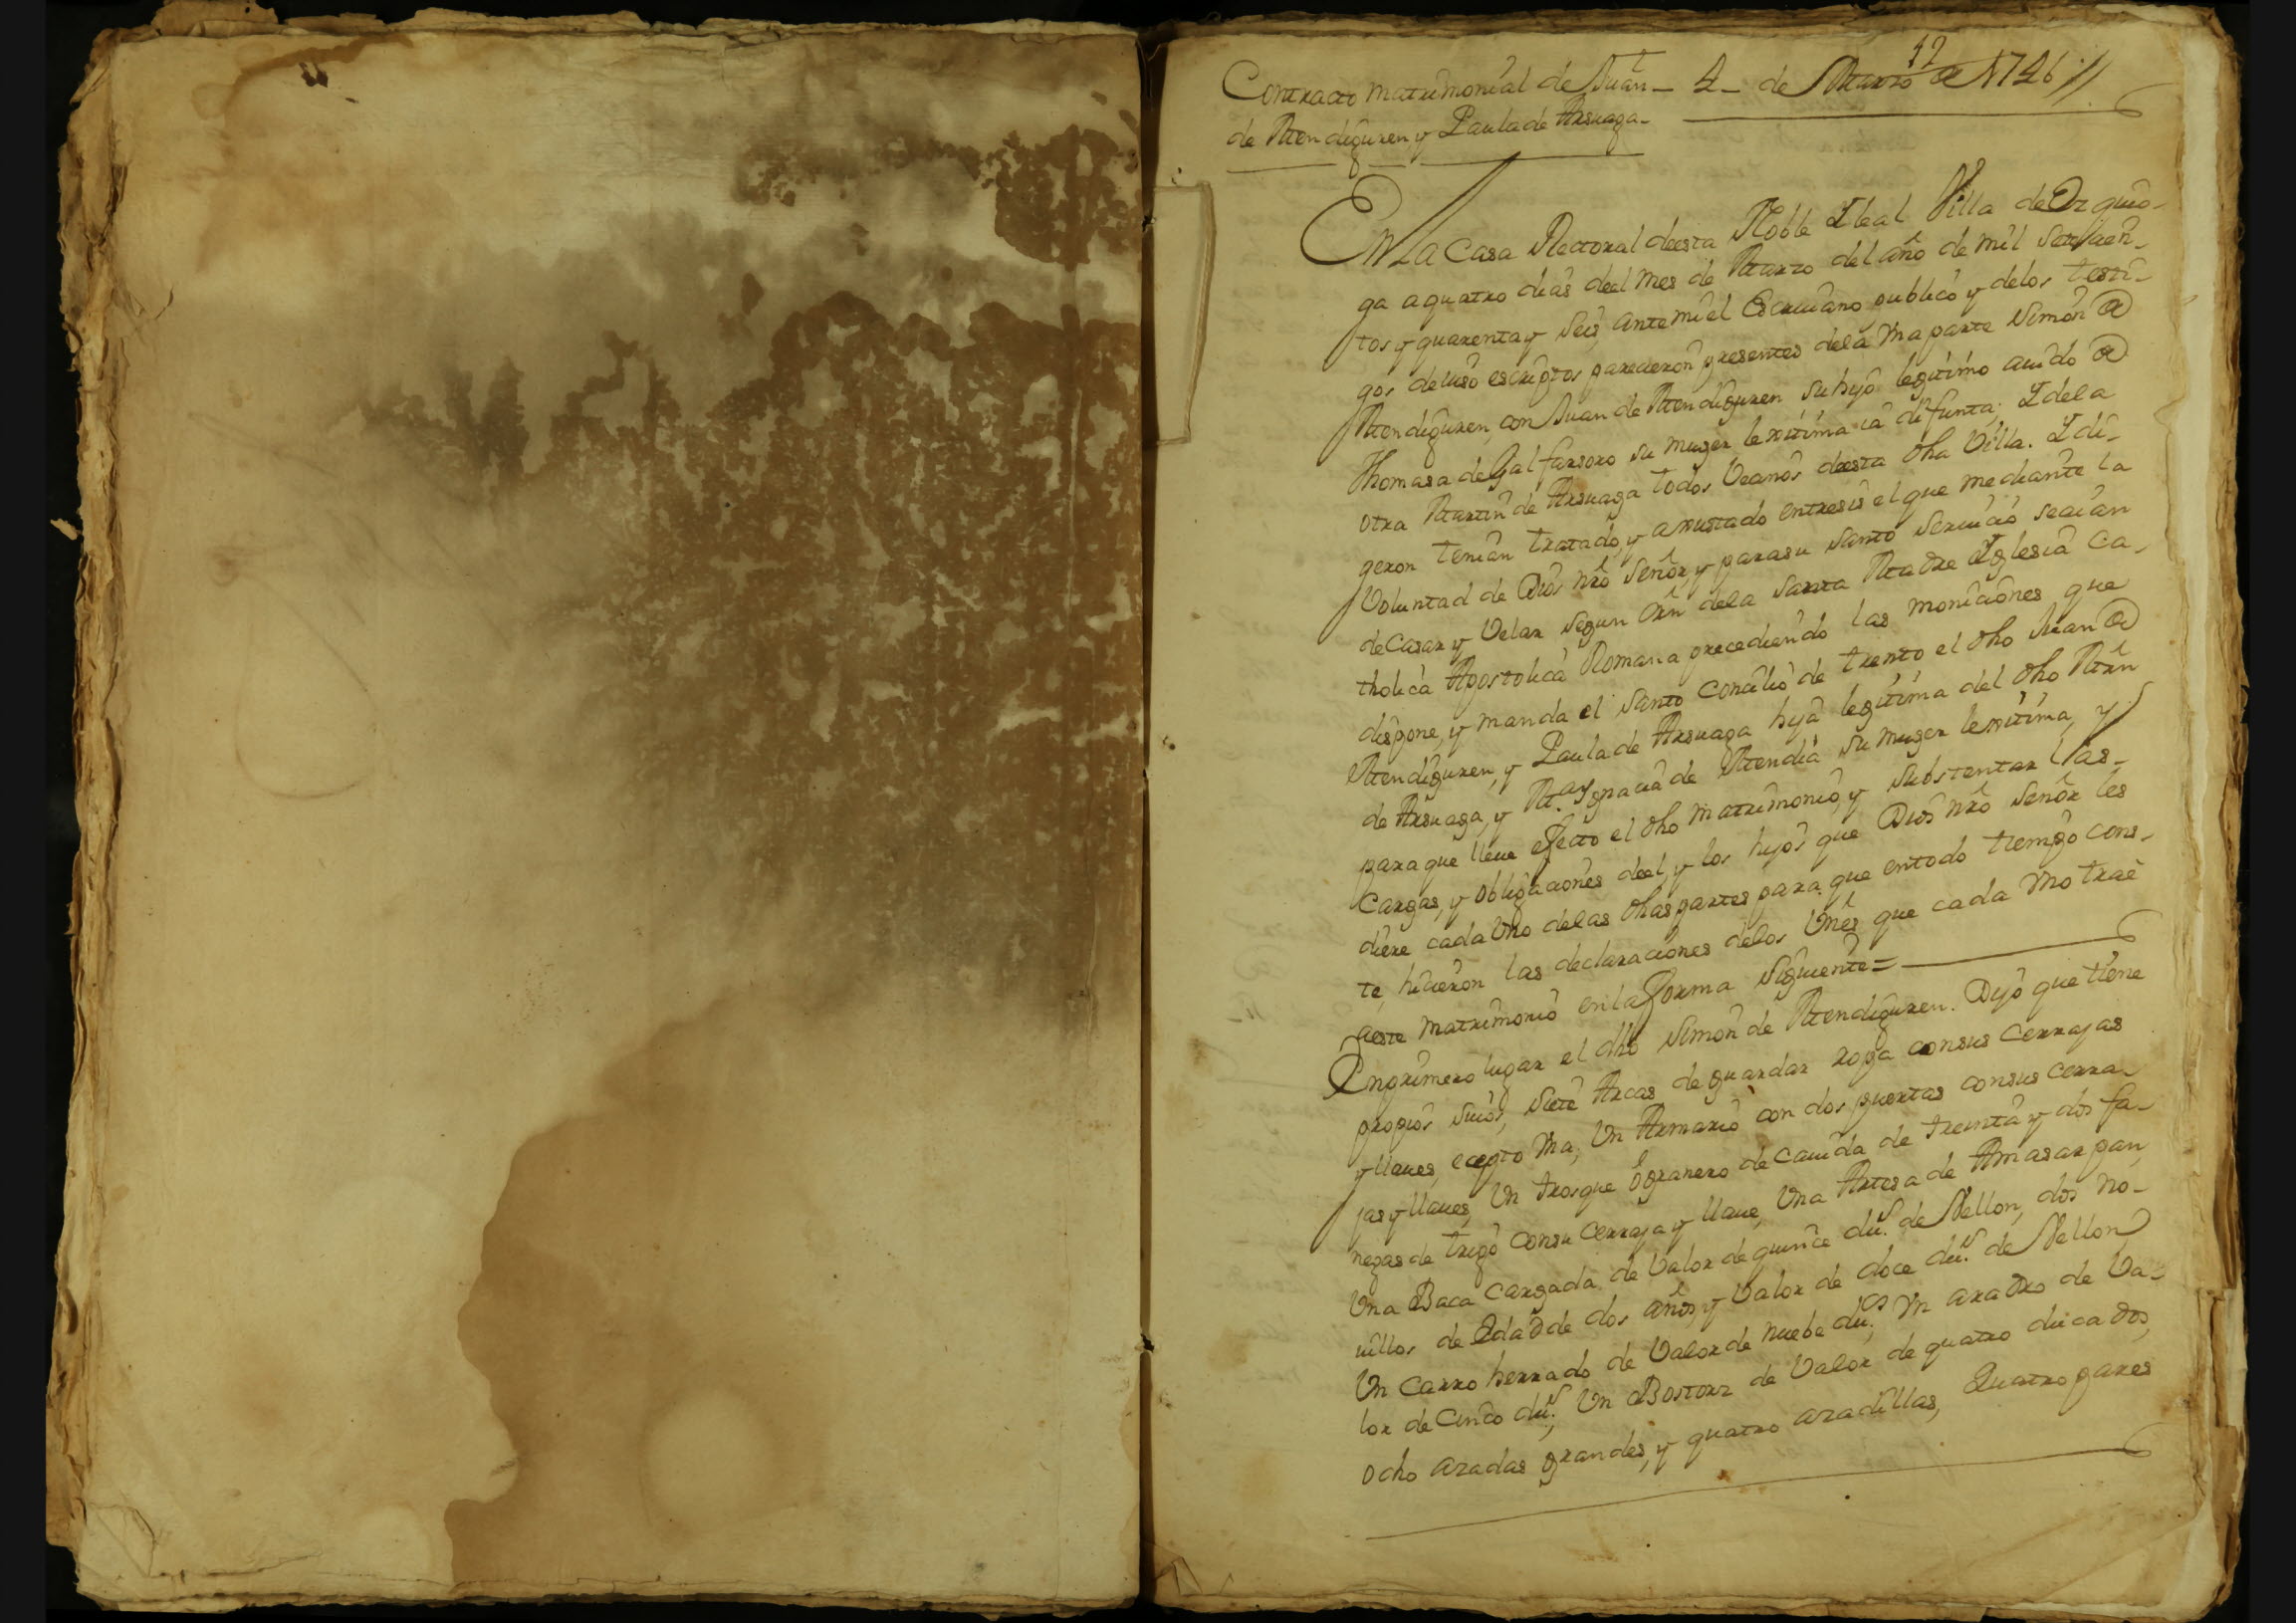 12
Contracto matrimonial de Juan - 4 - de Marzo de 1746 //
de Mendiguren, y Paula de Arsuaga -
En La Casa Rectoral deesta Noble Y leal Villa de Ozquio-
ga a quatro dias deel mes de Marzo del año de mil settecien-
tos y quarenta y seis, ante mi el Escriuano publico y delos testi-
gos deiuso escriptos parecieron presentes dela Vna parte Simon de
Mendiguren, con Juan de Mendiguren su hijo legitimo auido de
Thomasa de Galfarsoro su muger lexitima ia difunta; Y dela
otra Martin de Arsuaga todos Vecinos deesta dha Villa. Y di-
geron tenian tratado, y axustado entresis el que mediante la
Voluntad de Dios nrõ Señor, y parasu santo seruicio seaian
deCasar y Velar segun orn dela santa Madre Yglesia Ca-
tholica Apostolica Romana precediendo las moniciones que
dispone, y manda el santo concilio de trento el dho Juan de
Mendiguren, y Paula de Arsuaga hija legitima del dho Mrn
de Arsuaga, y M.ª Ygnacia de Mendia su muger lexitima, y
paraque lleue efecto el dho matrimonio, y substentar las-
Cargas, y obligaciones deel, y los hijos que Dios nrõ Señor les
diere cada Vno delas dhas partes para que entodo tiempo cons-
te, hicieron las declaraciones delos Vnes que cada Vno trae
aeste matrimonio enla forma siguiente=
Enprimero lugar el dho Simon de Mendiguren. Dijo que tiene
propios suios, siete Arcas de guardar ropa consus cerrajas
y llaues, ecepto Vna, Vn Armario con dos puertas consus cerra-
jas y llaues, Vn trosque o granero de cauida de treinta y dos fa-
negas de trigo consu cerraja y llaue, Vna Artesa de Amasar pan,
Vna Baca cargada de Valor de quince du.s de Vellon, dos no-
uillos de Edad de dos años, y Valor de doce du.s de Vellon
Vn carro herrado de Valor de nuebe du.s, Vn aradro de Va-
lor de Cinco du.s, Vn Bostorz de Valor de quatro ducados,
ocho azadas grandes, y quatro azadillas, Quatro pares